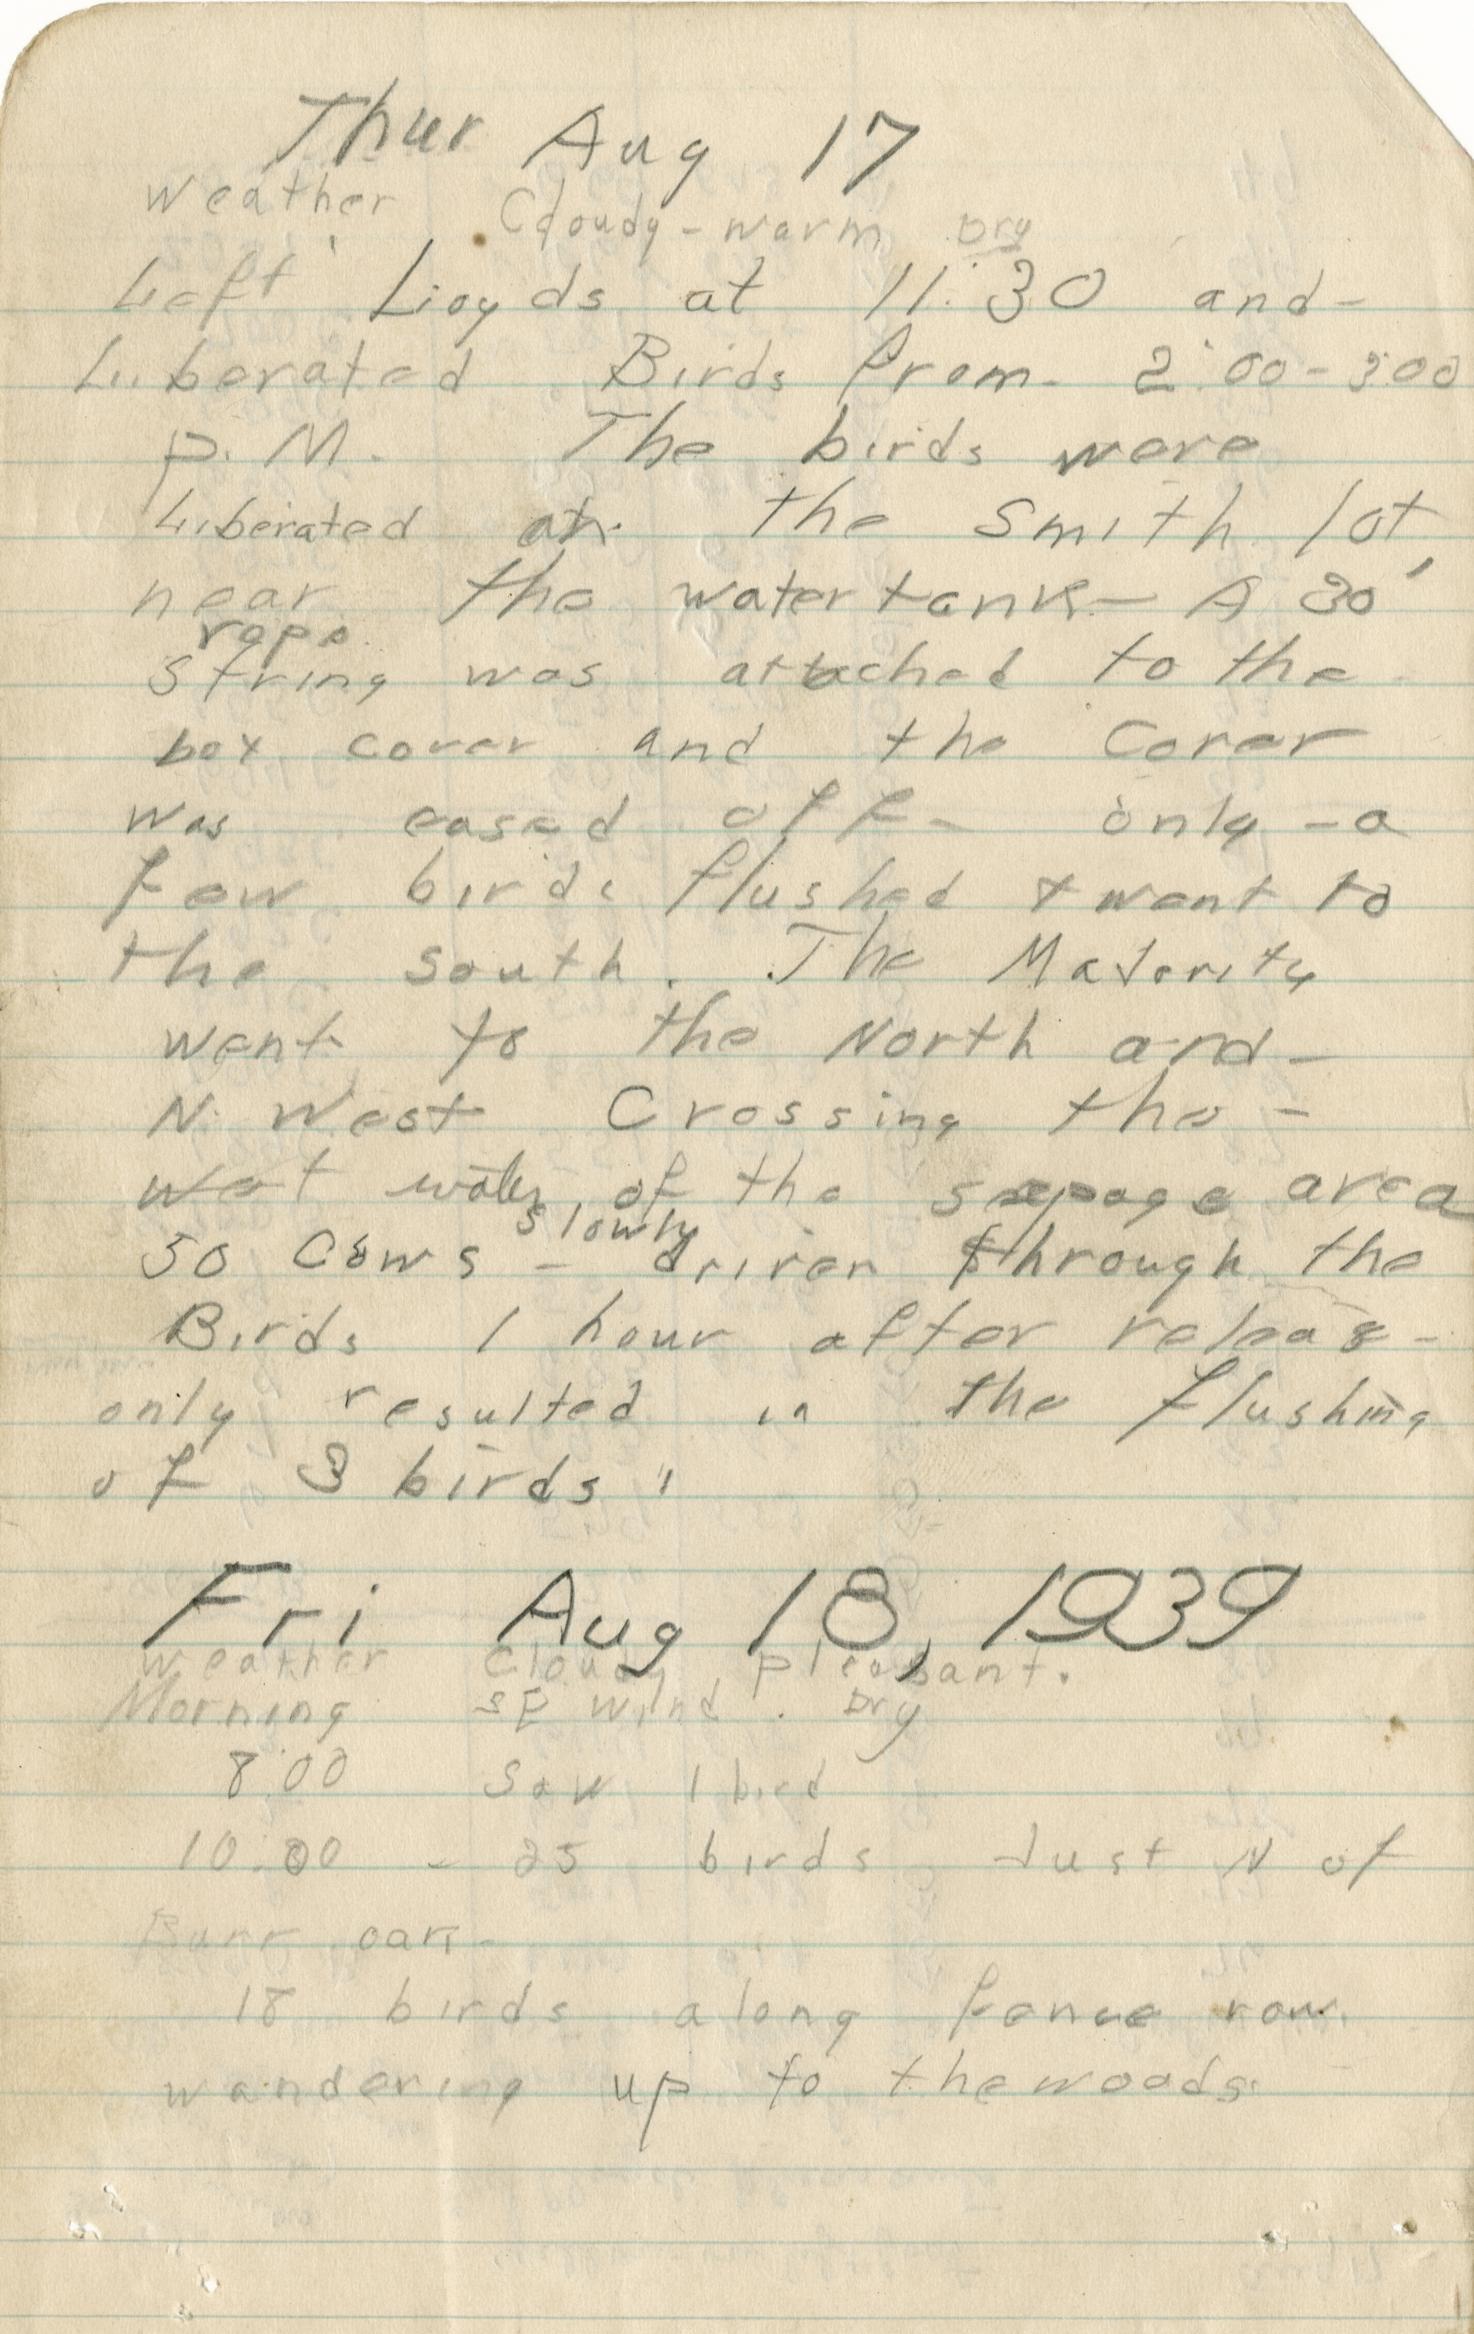 Thur Aug 17
Weather Cloudy - warm Dry
Left Lloyds at 11:30 and -
Liberated Birds from 2:00 - 3:00
P. M. The birds were
Liberated at the Smith lot,
near the water tank - A 30'
rope
string was attached to the
box cover and the Cover
was eased off - only - a
few birds flushed & went to
the south. The Majority
went to the North and -
N. West Crossing the -
wet of the seepage area
slowly
50 Cows - driven through the
Birds 1 hour after release -
only resulted in the flushing
of 3 birds "
Fri Aug 18, 1939
Weather Cloudy pleasant.
Morning SE wind. Dry
8:00 Saw 1 bird
10:00 - 25 birds Just N of
Burr oak -
18 birds along fence row
wandering up to the woods